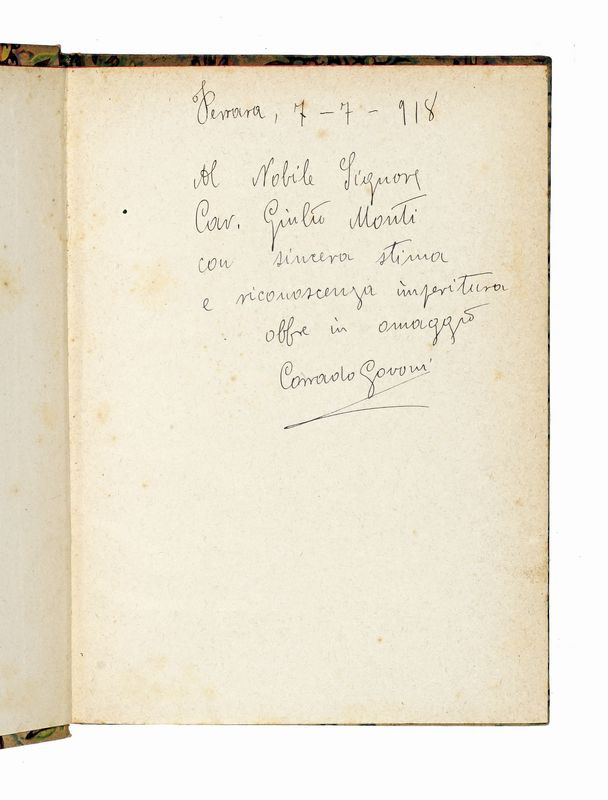 Ferrara, 7 - 7 - 918
Al Nobile Signore
Cav. Giulio Monti
con sincera stima
e riconoscenza imperitura
offre in omaggio
Corrado Govoni